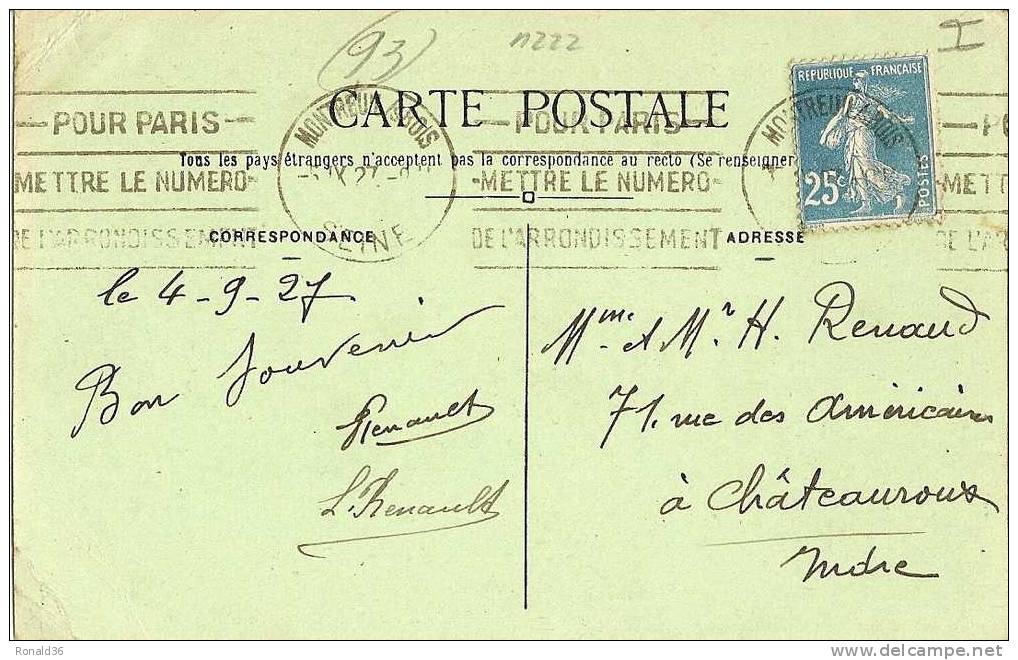 (93)
n222
H
CARTE POSTALE
Tous les pays étrangers n'acceptent pas la correspondance au recto (Se renseigner
POUR PARIS
METTRE LE NUMERO
DE L'ARRONDISSEMENT
MONTREUIL S/BOIS
SEINE
POUR PARIS
METTRE LE NUMERO
DE L'ARRONDISSEMENT
MONTREUIL S/BOIS
REPUBLIQUE FRANÇAISE
25c
POSTES
METT
DE L'AR
CORRESPONDANCE
ADRESSE
le 4-9-27.
Bon Souvenir
Renault
L. Renault
Mme et Mr H. Renaud
71. rue des Américains
à Châteauroux
Indre
Ronald36
delcampe.net